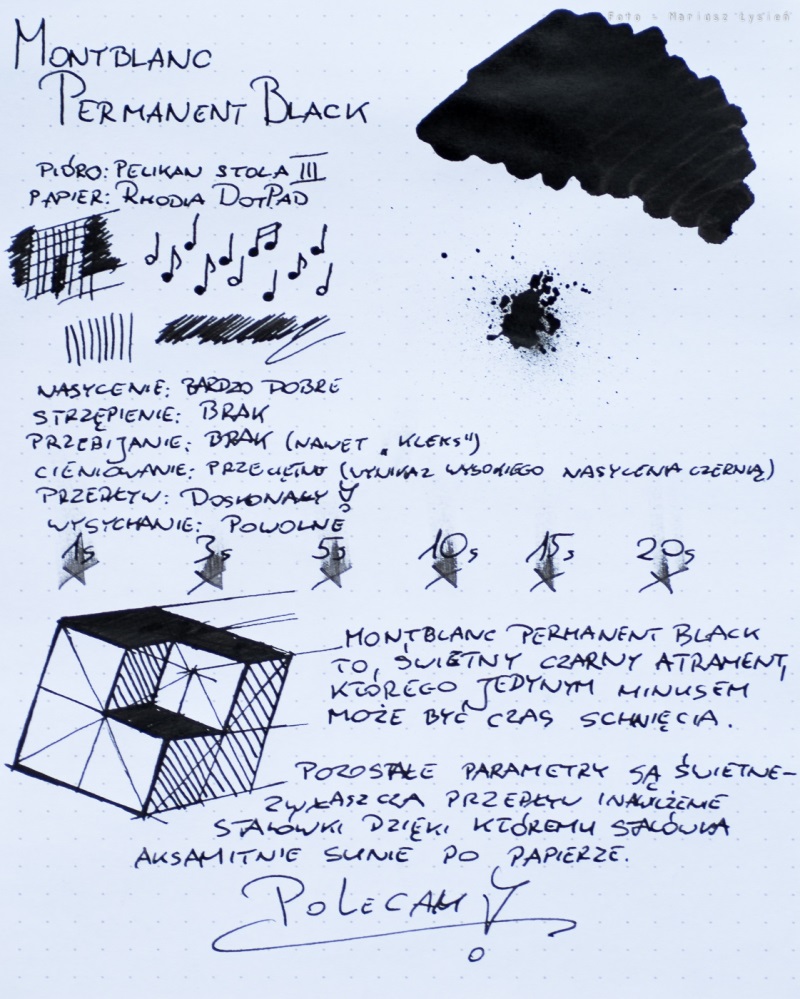 Foto - Mariusz Łysień
MONTBLANC
PERMANENT BLACK
PIÓRO: PELIKAN STOLA III
PAPIER: RHODIA DOTPAD
NASYCENIE: BARDZO DOBRE
STRZĘPIENIE: BRAK
PRZEBIJANIE: BRAK (NAWET „KLEKS")
CIENIOWANIE: PRZECIĘTNE (WYNIKA Z WYSOKIEGO NASYCENIA CZERNIĄ)
PRZEPŁYW: DOSKONAŁY!
WYSYCHANIE: POWOLNE
1s 3s 5s 10s 15s 20s
MONTBLANC PERMANENT BLACK
TO, ŚWIETNY CZARNY ATRAMENT,
KTÓREGO JEDYNYM MINUSEM
MOŻE BYĆ CZAS SCHNIĘCIA.
POZOSTAŁE PARAMETRY SĄ ŚWIETNE-
ZWŁASZCZA PRZEPŁYW I NAWILŻENIE
STALÓWKI DZIĘKI KTÓREMU STALÓWKA
AKSAMITNIE SUNIE PO PAPIERZE.
POLECAM!